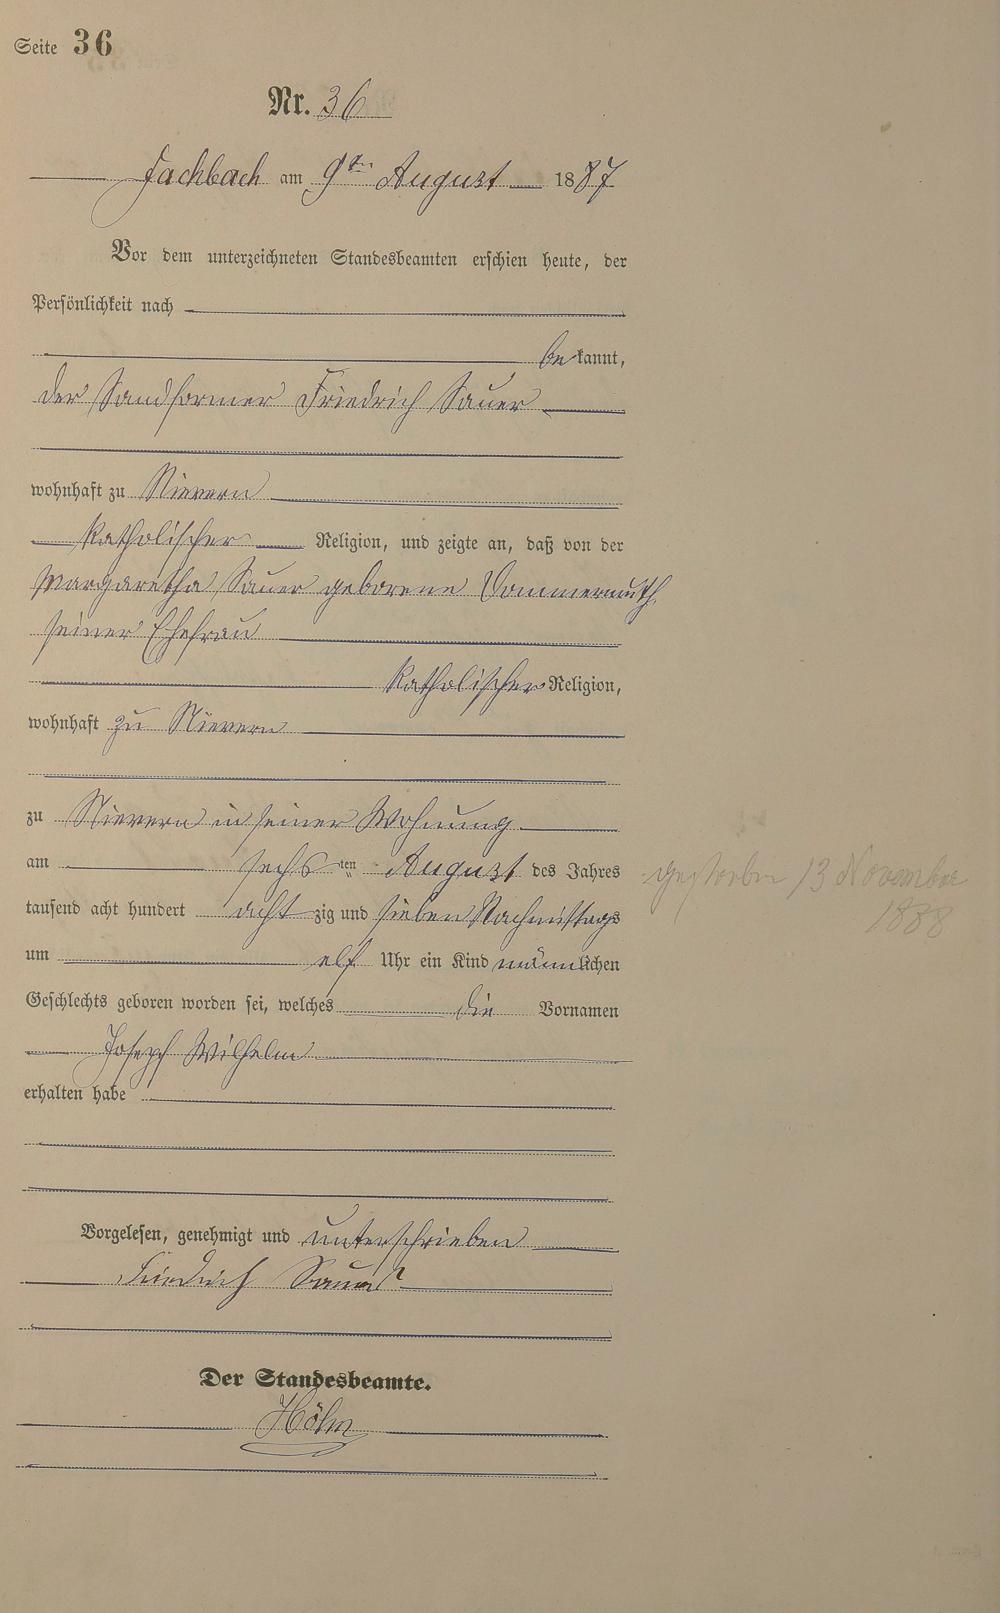 Seite 36
Nr. 36
Fachbach am 9ten August 1887
Vor dem unterzeichneten Standesbeamten erschien heute, der
Persönlichkeit nach
bekannt,
der Sandformer Friedrich Sauer
wohnhaft zu Nievern
katholischer Religion, und zeigte an, daß von der
Margaretha Sauer geborene Dommermuth
seiner Ehefrau
katholischer Religion,
wohnhaft zu Nievern
zu Nievern in seiner Wohnung
am sechsten August des Jahres
tausend acht hundert achtzig und sieben Nachmittags
um elf Uhr ein Kind männlichen
Geschlechts geboren worden sei, welches die Vornamen
Joseph Wilhelm
erhalten habe
gestorben 13 November
1888
Vorgelesen, genehmigt und unterschrieben
Friedrich Sauer
Der Standesbeamte.
Höhn